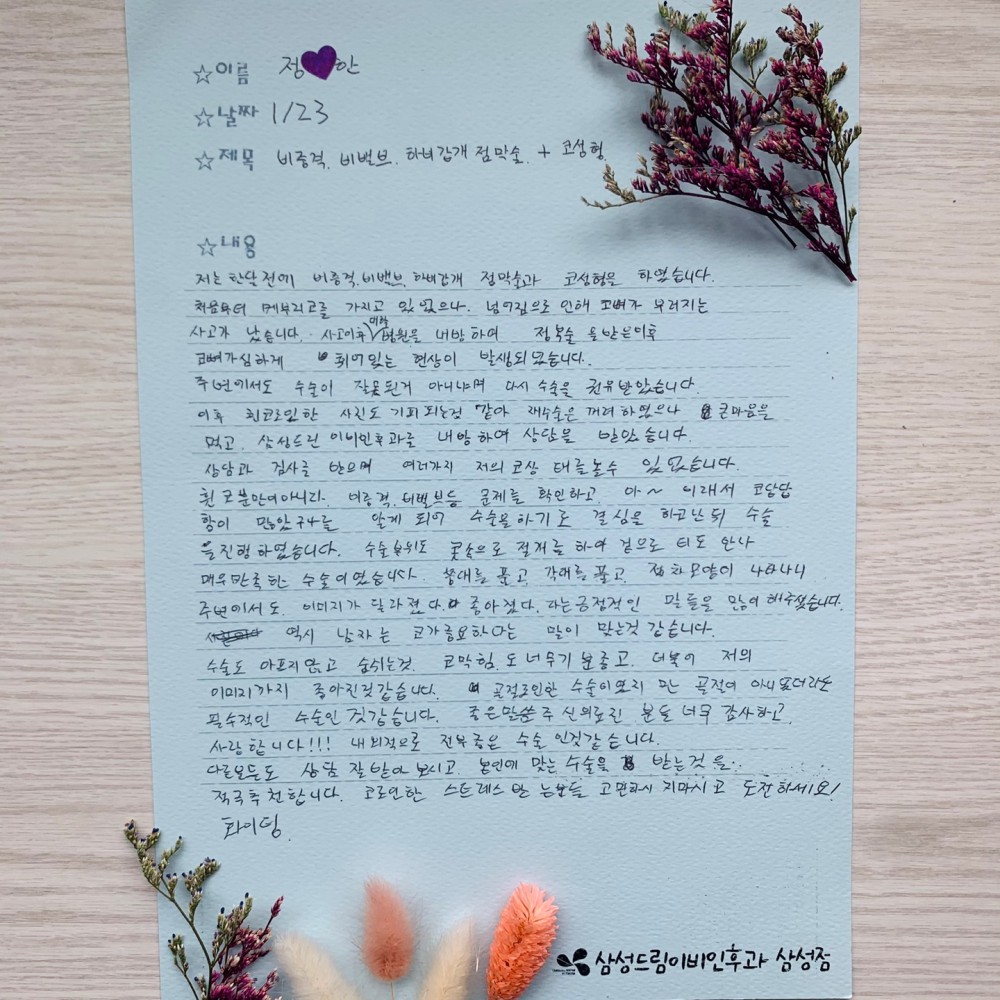 ☆이름 정♥안
☆날짜 1/23
☆제목 비중격, 비밸브, 하비갑개 점막술, + 코성형,
☆내용
저는 한달전에 비중격, 비밸브, 하비갑개 점막술과 코성형을 하였습니다.
처음부터 메부리코를 가지고 있었으나, 넘어짐으로 인해 코뼈가 부러지는
사고가 났습니다. 사고이후 병원을 내방하여 정복술을 받은이후
코뼈가심하게 휘어있는 현상이 발생되었습니다.
주변에서도 수술이 잘못된거 아니냐며 다시 수술을 권유받았습니다
이후 휜코로인한 사진도 기피되는것 같아 재수술은 꺼려하였으나 큰마음을
먹고, 삼성드림이비인후과를 내방하여 상담을 받았습니다.
상담과 검사를 받으며 여러가지 저의코상태를볼수 있었습니다.
휜코뿐만이아니라, 비중격, 비밸브등 문제를 확인하고, 아~ 이래서 코답답
함이 많았구나를 알게 되어 수술을하기로 결심을 하고난뒤 수술
을진행하였습니다. 수술부위도 콧속으로 절개를 하여 겉으로 티도 안나
매우만족한 수술이였습니다. 붕대를 풀고, 각대를 풀고, 점차모양이 나타나니
주변에서도, 이미지가 달라졌다. 좋아졌다, 라는긍정적인 말들을 많이해주셨습니다.
역시 남자는 코가중요하다는 말이 맞는것 같습니다.
수술도 아프지않고 숨쉬는것, 코막힘,도너무기분좋고, 더불어 저의
이미지까지 좋아진것같습니다. 골절로인한 수술이였지만 골절이 아니였더라도
필수적인 수술인것같습니다. 좋은말씀주신의료진 분들 너무 감사하고,
사랑합니다!!! 내외적으로 전부좋은 수술인것같습니다.
다른분들도 상담 잘받아보시고, 본인에 맞는수술을 받는것을..
적극추천합니다. 코로인한 스트레스받는분들 고민하시지마시고 도전하세요!
화이팅.
삼성드림이비인후과 삼성점